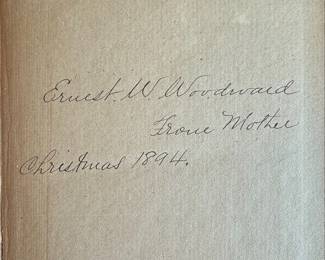 Ernest. W. Woodward
From Mother
Christmas 1894.